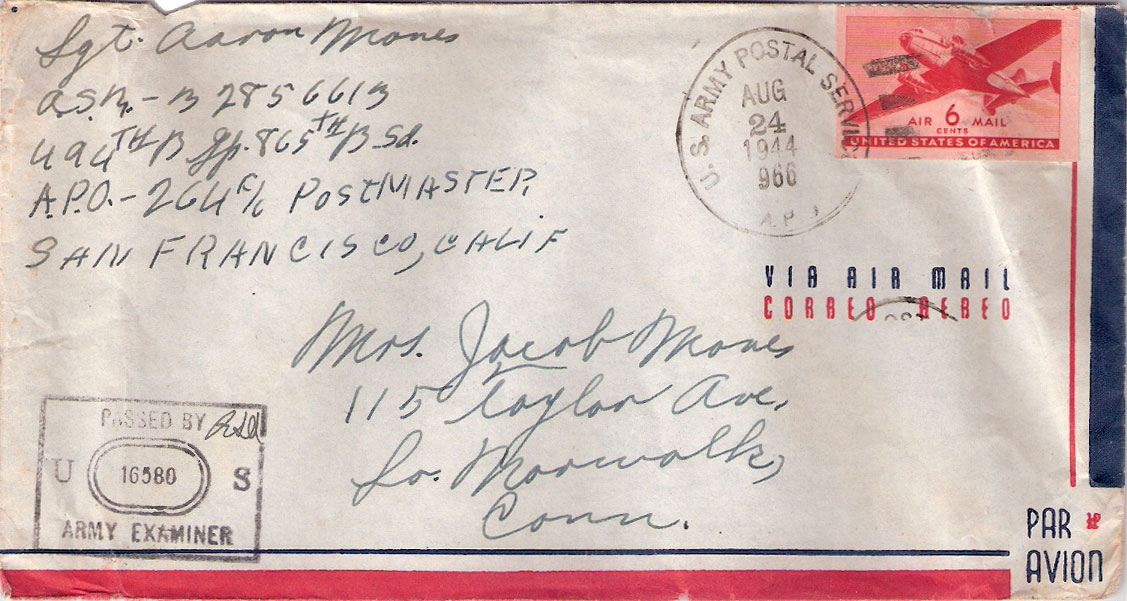 Sgt. Aaron Mones
A.S.N. - 
494TH B Gp. 865TH B Sd.
A.P.O. - 264 c/o POSTMASTER,
SAN FRANCISCO, CALIF
U.S. ARMY POSTAL SERVICE
AUG
24
1944
966
A.P
AIR 6 MAIL
CENTS
UNITED STATES OF AMERICA
VIA AIR MAIL
CORREO AEREO
Mrs. Jacob Mones
115 Taylor Ave,
So. Norwalk,
Conn.
PASSED BY
U 16580 S
ARMY EXAMINER
PAR
AVION